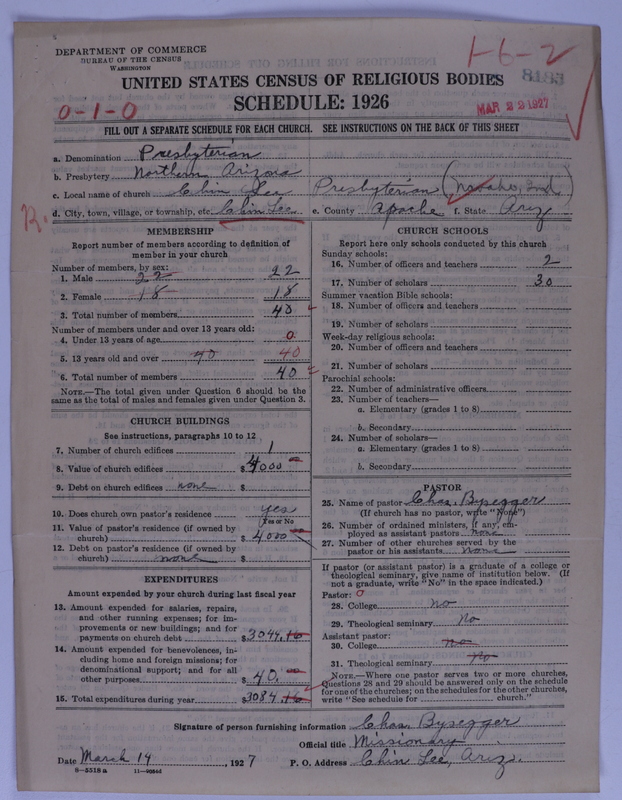 DEPARTMENT OF COMMERCE
BUREAU OF THE CENSUS
WASHINGTON
1-6-2
8183
UNITED STATES CENSUS OF RELIGIOUS BODIES
SCHEDULE: 1926
0-1-0
MAR 22 1927
FILL OUT A SEPARATE SCHEDULE FOR EACH CHURCH. SEE INSTRUCTIONS ON THE BACK OF THIS SHEET
a. Denomination Presbyterian
b. Presbytery Northern Arizona
c. Local name of church Chin Lee Presbyterian (Navaho, Ind.)
R. d. City, town, village, or township, etc. Chin Lee e. County Apache f. State Ariz
MEMBERSHIP
Report number of members according to definition of
member in your church
Number of members, by sex:
1. Male 22 22
2. Female 18 18
3. Total number of members 40
Number of members under and over 13 years old:
4. Under 13 years of age 0
5. 13 years old and over 40 40
6. Total number of members 40
NOTE.—The total given under Question 6 should be the
same as the total of males and females given under Question 3.
CHURCH BUILDINGS
See instructions, paragraphs 10 to 12
7. Number of church edifices 1
8. Value of church edifices $4000
9. Debt on church edifices none $
10. Does church own pastor's residence yes
Yes or No
11. Value of pastor's residence (if owned by
church) $4000
12. Debt on pastor's residence (if owned by
church) none $
EXPENDITURES
Amount expended by your church during last fiscal year
13. Amount expended for salaries, repairs,
and other running expenses; for im-
provements or new buildings; and for
payments on church debt $3044.16
14. Amount expended for benevolences, in-
cluding home and foreign missions; for
denominational support; and for all
other purposes $40.
15. Total expenditures during year $3084.16
CHURCH SCHOOLS
Report here only schools conducted by this church
Sunday schools:
16. Number of officers and teachers 2
17. Number of scholars 30
Summer vacation Bible schools:
18. Number of officers and teachers
19. Number of scholars
Week-day religious schools:
20. Number of officers and teachers
21. Number of scholars
Parochial schools:
22. Number of administrative officers
23. Number of teachers—
a. Elementary (grades 1 to 8)
b. Secondary
24. Number of scholars—
a. Elementary (grades 1 to 8)
b. Secondary
PASTOR
25. Name of pastor Chas. Bysegger
(If church has no pastor, write "None")
26. Number of ordained ministers, if any, em-
ployed as assistant pastors none
27. Number of other churches served by the
pastor or his assistants none
If pastor (or assistant pastor) is a graduate of a college or
theological seminary, give name of institution below. (If
not a graduate, write "No" in the space indicated.)
Pastor: 0
28. College no
29. Theological seminary No
Assistant pastor:
30. College no
31. Theological seminary No
NOTE.—Where one pastor serves two or more churches,
Questions 28 and 29 should be answered only on the schedule
for one of the churches; on the schedules for the other churches,
write "See schedule for church."
Signature of person furnishing information Chas. Bysegger
Official title Missionary
Date March 14, 1927 P. O. Address Chin Lee, Ariz.
8-5518a 11-9056d